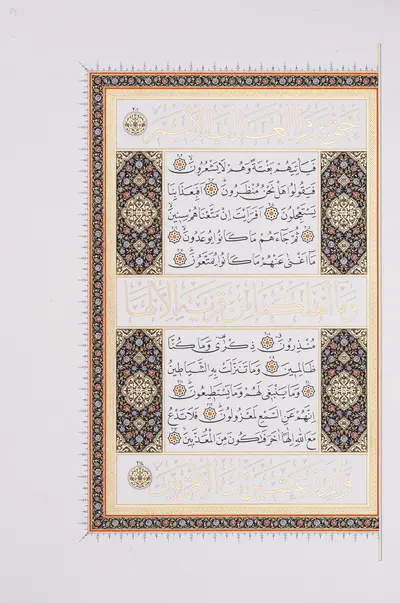 حَتَّى يَرَوُا الْعَذَابَ الْأَلِيمَ
فَيَأْتِيَهُمْ بَغْتَةً وَهُمْ لَا يَشْعُرُونَ
فَيَقُولُوا هَلْ نَحْنُ مُنْظَرُونَ أَفَبِعَذَابِنَا
يَسْتَعْجِلُونَ أَفَرَأَيْتَ إِنْ مَتَّعْنَاهُمْ سِنِينَ
ثُمَّ جَاءَهُمْ مَا كَانُوا يُوعَدُونَ
مَا أَغْنَى عَنْهُمْ مَا كَانُوا يُمَتَّعُونَ
وَمَا أَهْلَكْنَا مِنْ قَرْيَةٍ إِلَّا لَهَا
مُنْذِرُونَ ذِكْرَى وَمَا كُنَّا
ظَالِمِينَ وَمَا تَنَزَّلَتْ بِهِ الشَّيَاطِينُ
وَمَا يَنْبَغِي لَهُمْ وَمَا يَسْتَطِيعُونَ
إِنَّهُمْ عَنِ السَّمْعِ لَمَعْزُولُونَ فَلَا تَدْعُ
مَعَ اللَّهِ إِلَهًا آخَرَ فَتَكُونَ مِنَ الْمُعَذَّبِينَ
وَأَنْذِرْ عَشِيرَتَكَ الْأَقْرَبِينَ